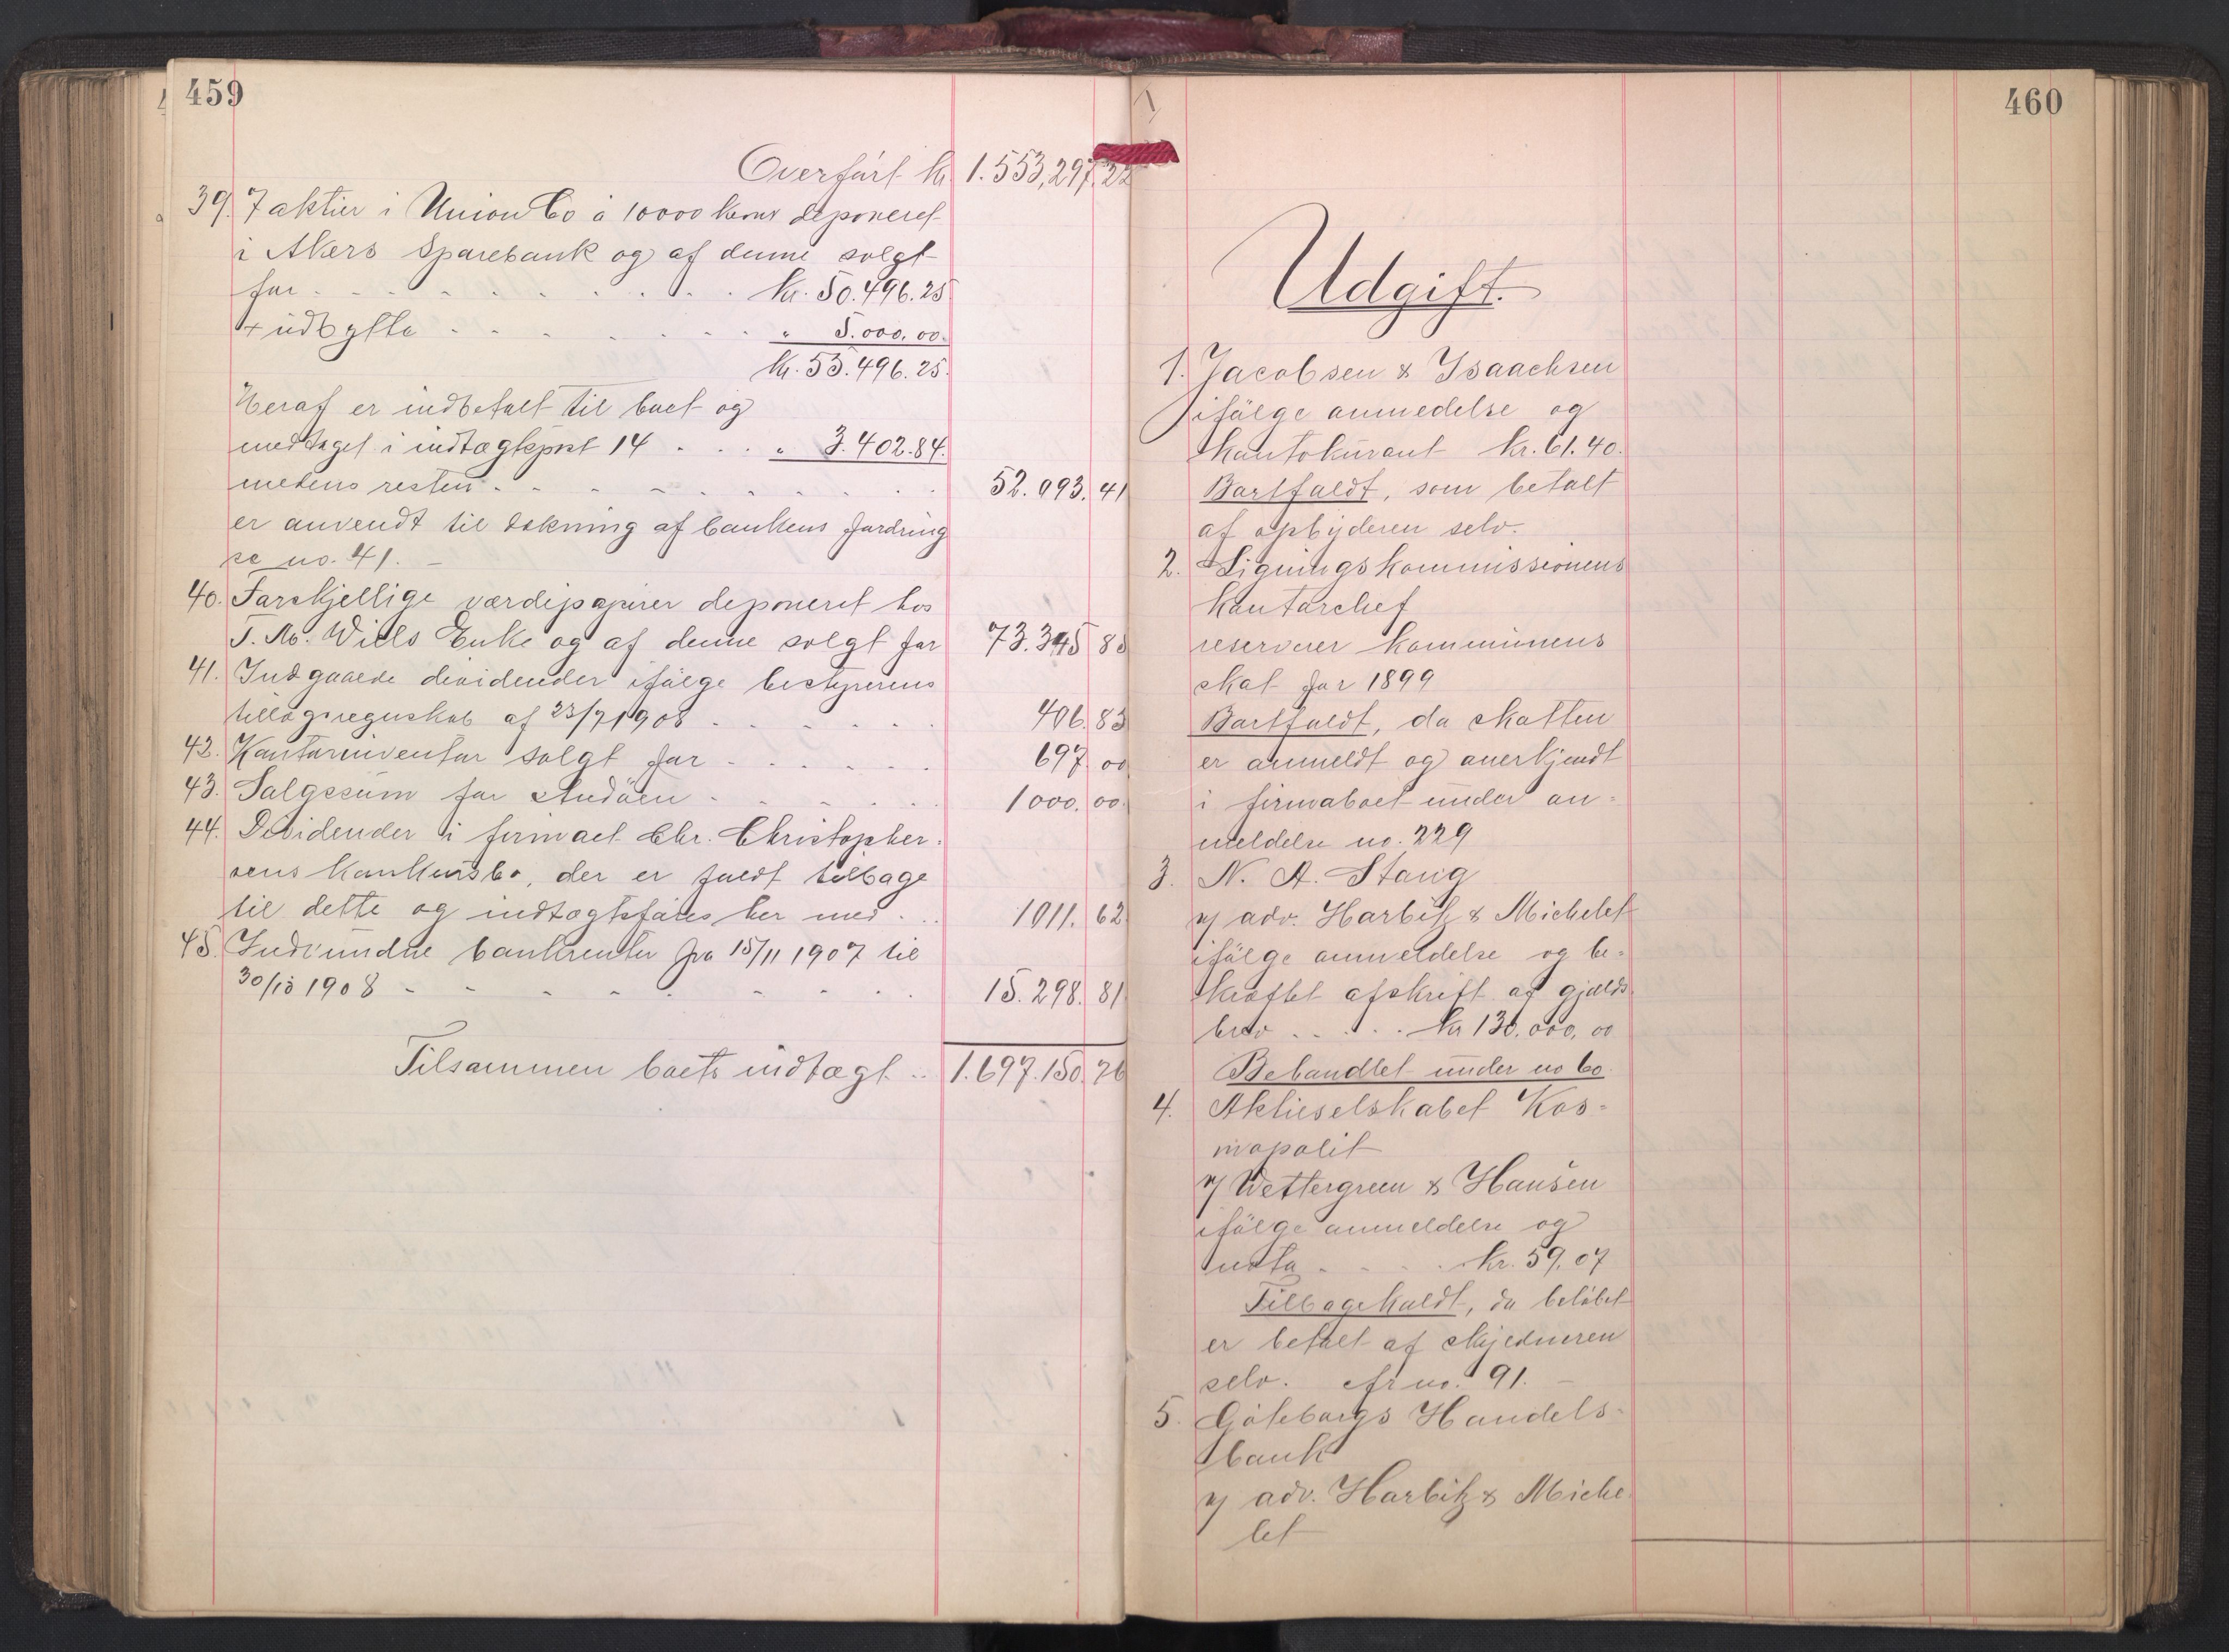 459
Overført kr. 1.553,297.22
39. 7 aktier i Union Co à 10000 kroner deponeret
i Akers Sparebank og af denne solgt
for . . . . . . . . kr. 50.496.25
+ udbytte . . . . . . . " 5.000.00.
kr. 55.496.25.
Heraf er indbetalt til boet og
medtaget i indtægtspost 14 . . . " 3.402.84.
medens resten . . . . . . . . 52.093.41
er anvendt til dækning af bankens fordring
se no. 41. –
40. Forskjellige værdipapirer deponeret hos
T. M. Wiels Enke og af denne solgt for 73.345 85
41. Indgaaede dividender ifølge bestyrerens
tillægsregnskab af 23/7 1908 . . . . . 406.83
42. Kontorinventar solgt for . . . . . . 697 00
43. Salgssum for Andøen . . . . . . 1000.00.
44. Dividender i firmaet Chr. Christopher-
sens konkursbo, der er faldt tilbage
til dette og indtægtsføres her med . . 1011.62
45. Indvundne bankrenter fra 15/11 1907 til
30/10 1908 . . . . . . . . . 15.298.81
Tilsammen boets indtægt .. 1.697.150.76
460
Udgift.
1. Jacobsen & Isaachsen
ifølge anmedelse og
kontokurant kr. 61.40.
Bortfaldt, som betalt
af opbyderen selv.
2. Ligningskommissionens
kontorchef
reserverer kommunens
skat for 1899
Bortfaldt, da skatten
er anmeldt og anerkjendt
i firmaboet under an-
meldelse no. 229
3. N. A. Stang
v/ adv. Harbitz & Michelet
ifølge anmeldelse og be-
kræftet afskrift af gjælds-
brev . . . . . kr 130.000,00
Behandlet under no 60.
4. Aktieselskabet Kos-
mopolit
v/ Wettergreen & Hansen
ifølge anmeldelse og
nota . . . . . kr. 59.07
Tilbagekaldt, da beløbet
er betalt af skyldneren
selv. cfr no. 91. –
5. Göteborgs Handels-
bank
v/ adv. Harbitz & Miche-
let